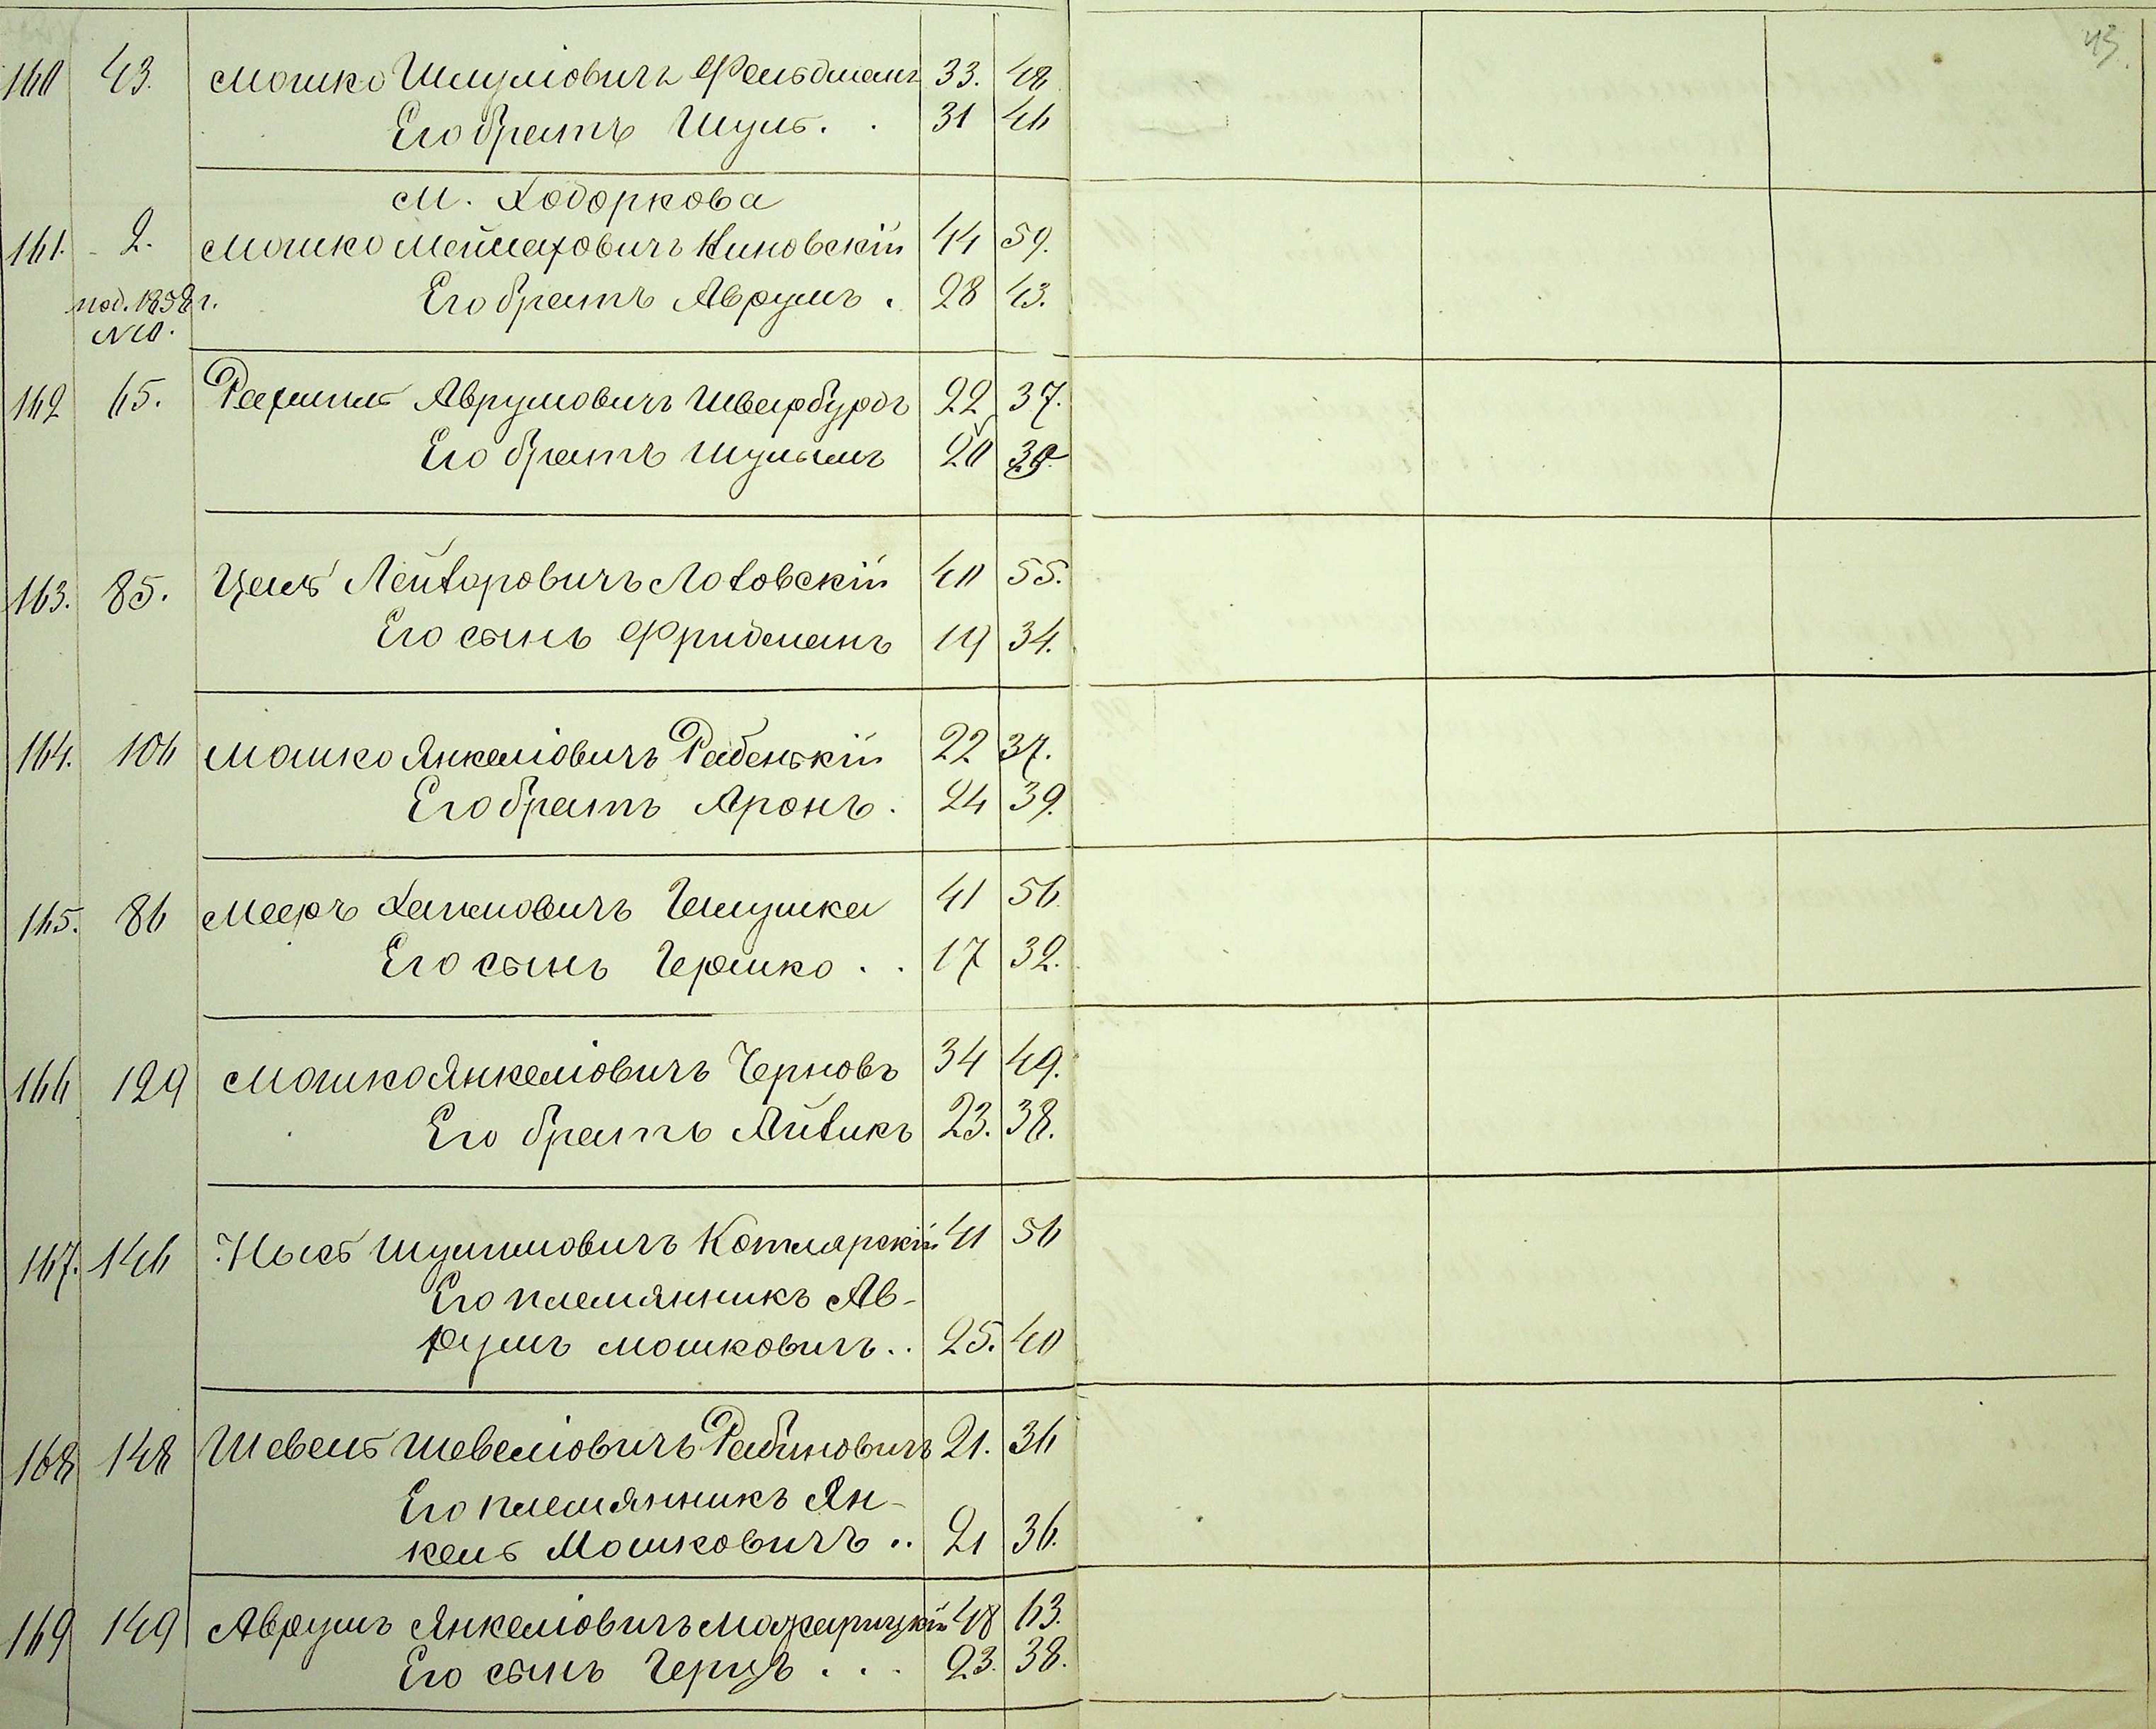 43.
160 43. Мошко Шмуліовичъ Фельдманъ 33. 48
Его братъ Шуль. . 31 46
М. Ходоркова
161. 2. Мошко Мейлаховичъ Киновскій 44 59.
под. 1858 г. Его братъ Аврумъ . 28 43.
№
162 65. Рахмиль Аврумовичъ Шварбурдъ 22 37.
Его братъ Шулымъ 20 35
163. 85. Цаль Лейзоровичъ Лозовскій 40 55.
Его сынъ Фридманъ 19 34.
164. 106 Мошко Янкеліовичъ Рабенькій 22 37.
Его братъ Аронъ . 24 39.
165. 86 Мееръ Хаимовичъ Галушка 41 56
Его сынъ Гершко . . 17 32.
166 129 Мошко Янкеліовичъ Черновъ 34 49.
Его братъ Айзикъ 23. 38.
167. 146 Ноях Шулимовичъ Котлярскій 41 56
Его племянникъ Ав-
румъ Мошковичъ .. 25. 40
168 148 Шевель Шевеліовичъ Рабиновичъ 21. 36
Его племянникъ Ян-
кель Мошковичъ .. 21 36.
169 149 Аврумъ Янкеліовичъ Мажарицкій 48 63.
Его сынъ Герцъ . . . 23. 38.